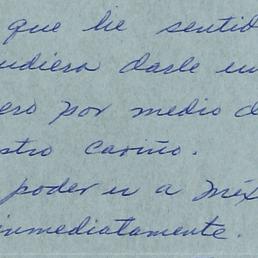 que he sentid
udiera darle un
ero por medio d
stro cariño.
poder ir a Méx
inmediatamente.